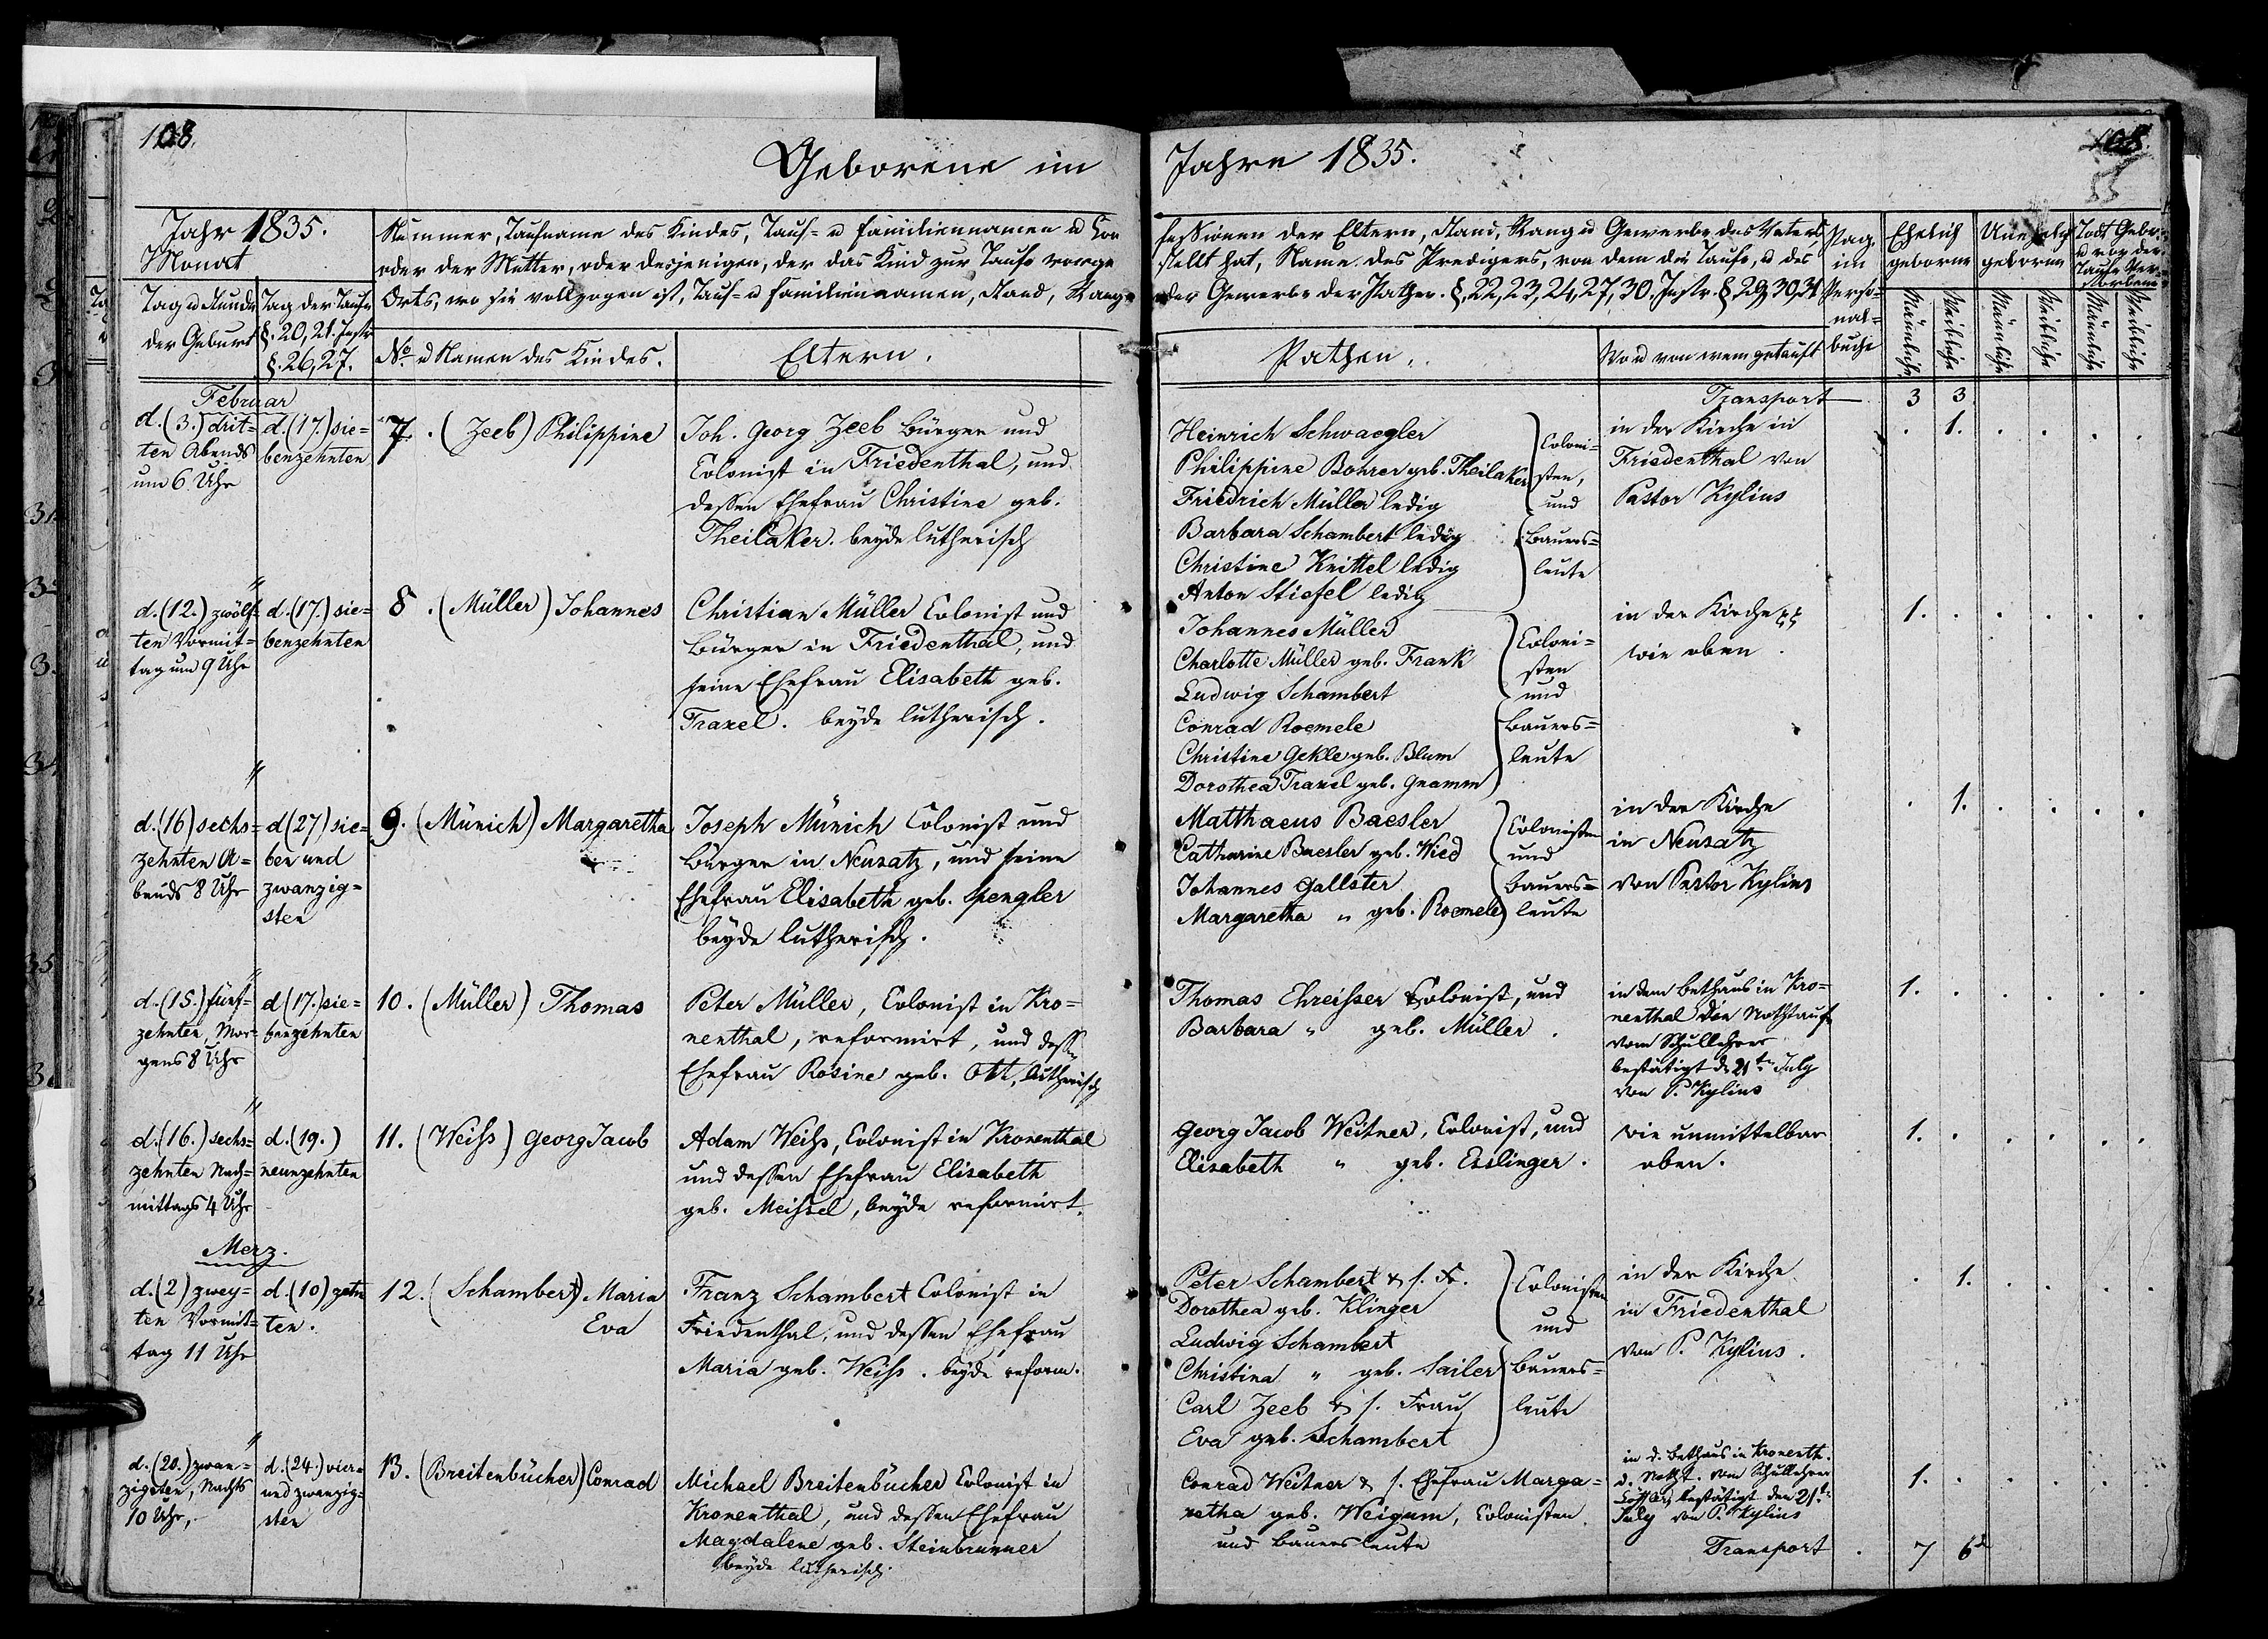 108.
Geborene im Jahre 1835.
108.
55
Jahr 1835.
Monat
Tag u Stunde
der Geburt
Tag der Taufe
§. 20, 21. Instr
§. 26, 27.
Nummer, Taufname des Kindes, Tauf= u Familiennamen u Con
oder der Mutter, oder desjenigen, der das Kind zur Taufe vorge
Orts, wo sie vollzogen ist, Tauf= u Familiennamen, Stand, Rang
No u Namen des Kindes.
Eltern.
fessionen der Eltern, Stand, Rang u Gewerbe des Vaters,
stellt hat, Name des Predigers, von dem die Taufe, u des
oder Gewerbe der Pathen. §. 22, 23, 24, 27, 30. Instr. §. 29, 30, 31
Pathen.
Wo u von wem getauft
Pag.
im
Perso=
nal=
buche
Ehelich
geborne
Unehelich
geborne
Todt Gebor
u vor der
Taufe Ver=
storbene
Männliche
Weibliche
Männliche
Weibliche
Männliche
Weibliche
Transport 3 3
Februar
d. (3.) drit=
ten Abends
um 6 Uhr
d. (17.) sie=
benzehnten
7. (Zeeb) Philippine
Joh. Georg Zeeb Bürger und
Colonist in Friedenthal, und
dessen Ehefrau Christine geb.
Theilaker. beyde lutherisch
Heinrich Schwaegler
Philippine Bohrer geb. Theilaker
Friedrich Müller ledig
Barbara Schambert ledig
Christine Knittel ledig
Anton Stiefel ledig
Coloni=
sten,
und
Bauers=
leute
in der Kirche in
Friedenthal von
Pastor Kylius
. 1. . . . .
"
d. (12.) zwölf=
ten Vormit=
tag um 9 Uhr
d. (17.) sie=
benzehnten
8. (Müller) Johannes
Christian Müller Colonist und
Bürger in Friedenthal, und
seine Ehefrau Elisabeth geb.
Traxel. beyde lutherisch.
Johannes Müller
Charlotte Müller geb. Frank
Ludwig Schambert
Conrad Roemele
Christine Gekle geb. Blum
Dorothea Traxel geb. Gramm
Coloni=
sten
und
Bauers=
leute
in der Kirche
wie oben.
1. . . . . .
"
d. (16) sechs=
zehnten A=
bends 8 Uhr
d (27) sie=
ben und
zwanzig=
sten
9. (Münich) Margaretha
Joseph Münich Colonist und
Bürger in Neusatz, und seine
Ehefrau Elisabeth geb. Spengler
beyde lutherisch.
Matthaeus Baesler
Catharine Baesler geb. Wied
Johannes Gallster
Margaretha " geb. Roemele
Colonisten
und
Bauers=
leute
in der Kirche
in Neusatz
von Pastor Kylius
. 1. . . . .
"
d. (15.) fünf=
zehnten, Mor=
gens 8 Uhr
d (17.) sie=
benzehnten
10. (Müller) Thomas
Peter Müller, Colonist in Kro=
nenthal, reformirt, und dessen
Ehefrau Rosine geb. Ott, lutherisch
Thomas Ehreisser Colonist, und
Barbara " geb. Müller.
in dem Bethaus in Kro=
nenthal die Nothtaufe
vom Schullehrer
bestätigt d. 21ten July
von P. Kylius
1. . . . . .
"
d. (16.) sechs=
zehnten Nach=
mittags 4 Uhr
d. (19.)
neunzehnten
11. (Weiss) Georg Jacob
Adam Weiss, Colonist in Kronenthal
und dessen Ehefrau Elisabeth
geb. Meissel, beyde reformirt.
Georg Jacob Weitner, Colonist, und
Elisabeth " geb. Esslinger.
wie unmittelbar
oben.
1. . . . . .
Merz.
d. (2) zwey=
ten Vormit=
tag 11 Uhr
d. (10) zehn
ten.
12. (Schambert) Maria
Eva
Franz Schambert Colonist in
Friedenthal, und dessen Ehefrau
Maria geb. Weiss. beyde reform.
Peter Schambert & s. Fr.
Dorothea geb. Klinger
Ludwig Schambert
Christina " geb. Sailer
Carl Zeeb & s. Frau
Eva geb. Schambert
Colonisten
und
Bauers=
leute
in der Kirche
in Friedenthal
von P. Kylius.
. 1. . . . .
"
d. (20.) zwan=
zigsten, Nachts
10 Uhr,
d. (24.) vier=
und zwanzig=
sten
13. (Breitenbücher) Conrad
Michael Breitenbücher Colonist in
Kronenthal, und dessen Ehefrau
Magdalene geb. Steinbrunner
beyde lutherisch.
Conrad Weitner & s. Ehefrau Marga=
retha geb. Weigum, Colonisten
und Bauersleute
in d. Bethaus in Kronenth.
d. Notht. vom Schullehrer
bestätigt den 21t.
July von P. Kylius
1. . . . . .
Transport . 7 6